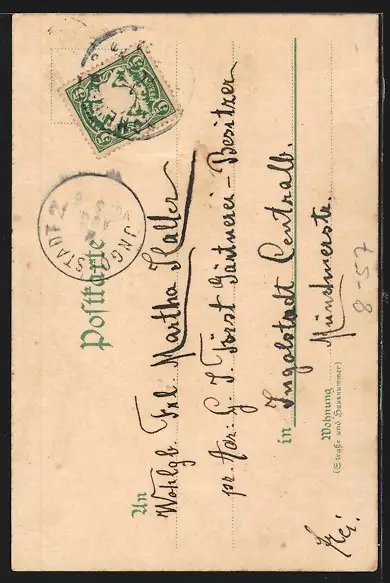 Postkarte
INGOLSTADT 2
An
Wohlgb. Frl. Martha Haller
pr. Adr. G. J. Först Gärtnerei-Besitzer
in Ingolstadt Centralb.
Münchnerstr.
Wohnung
(Straße und Hausnummer)
frei.
8-57